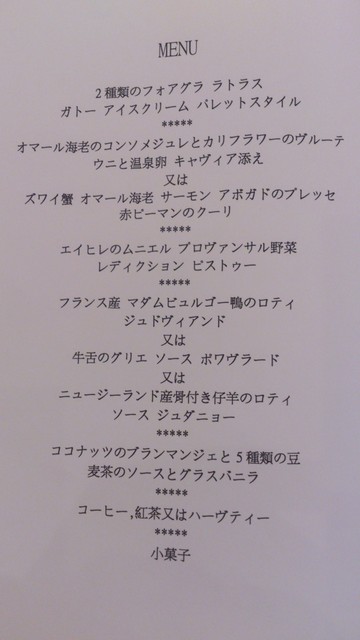 MENU
2種類のフォアグラ ラトラス
ガトー アイスクリーム パレットスタイル
*****
オマール海老のコンソメジュレとカリフラワーのヴルーテ
ウニと温泉卵 キャヴィア添え
又は
ズワイ蟹 オマール海老 サーモン アボガドのプレッセ
赤ピーマンのクーリ
*****
エイヒレのムニエル プロヴァンサル野菜
レディクション ピストゥー
*****
フランス産 マダムビュルゴー鴨のロティ
ジュドヴィアンド
又は
牛舌のグリエ ソース ポワヴラード
又は
ニュージーランド産骨付き仔羊のロティ
ソース ジュダニョー
*****
ココナッツのブランマンジェと5種類の豆
麦茶のソースとグラスバニラ
*****
コーヒー,紅茶又はハーヴティー
*****
小菓子